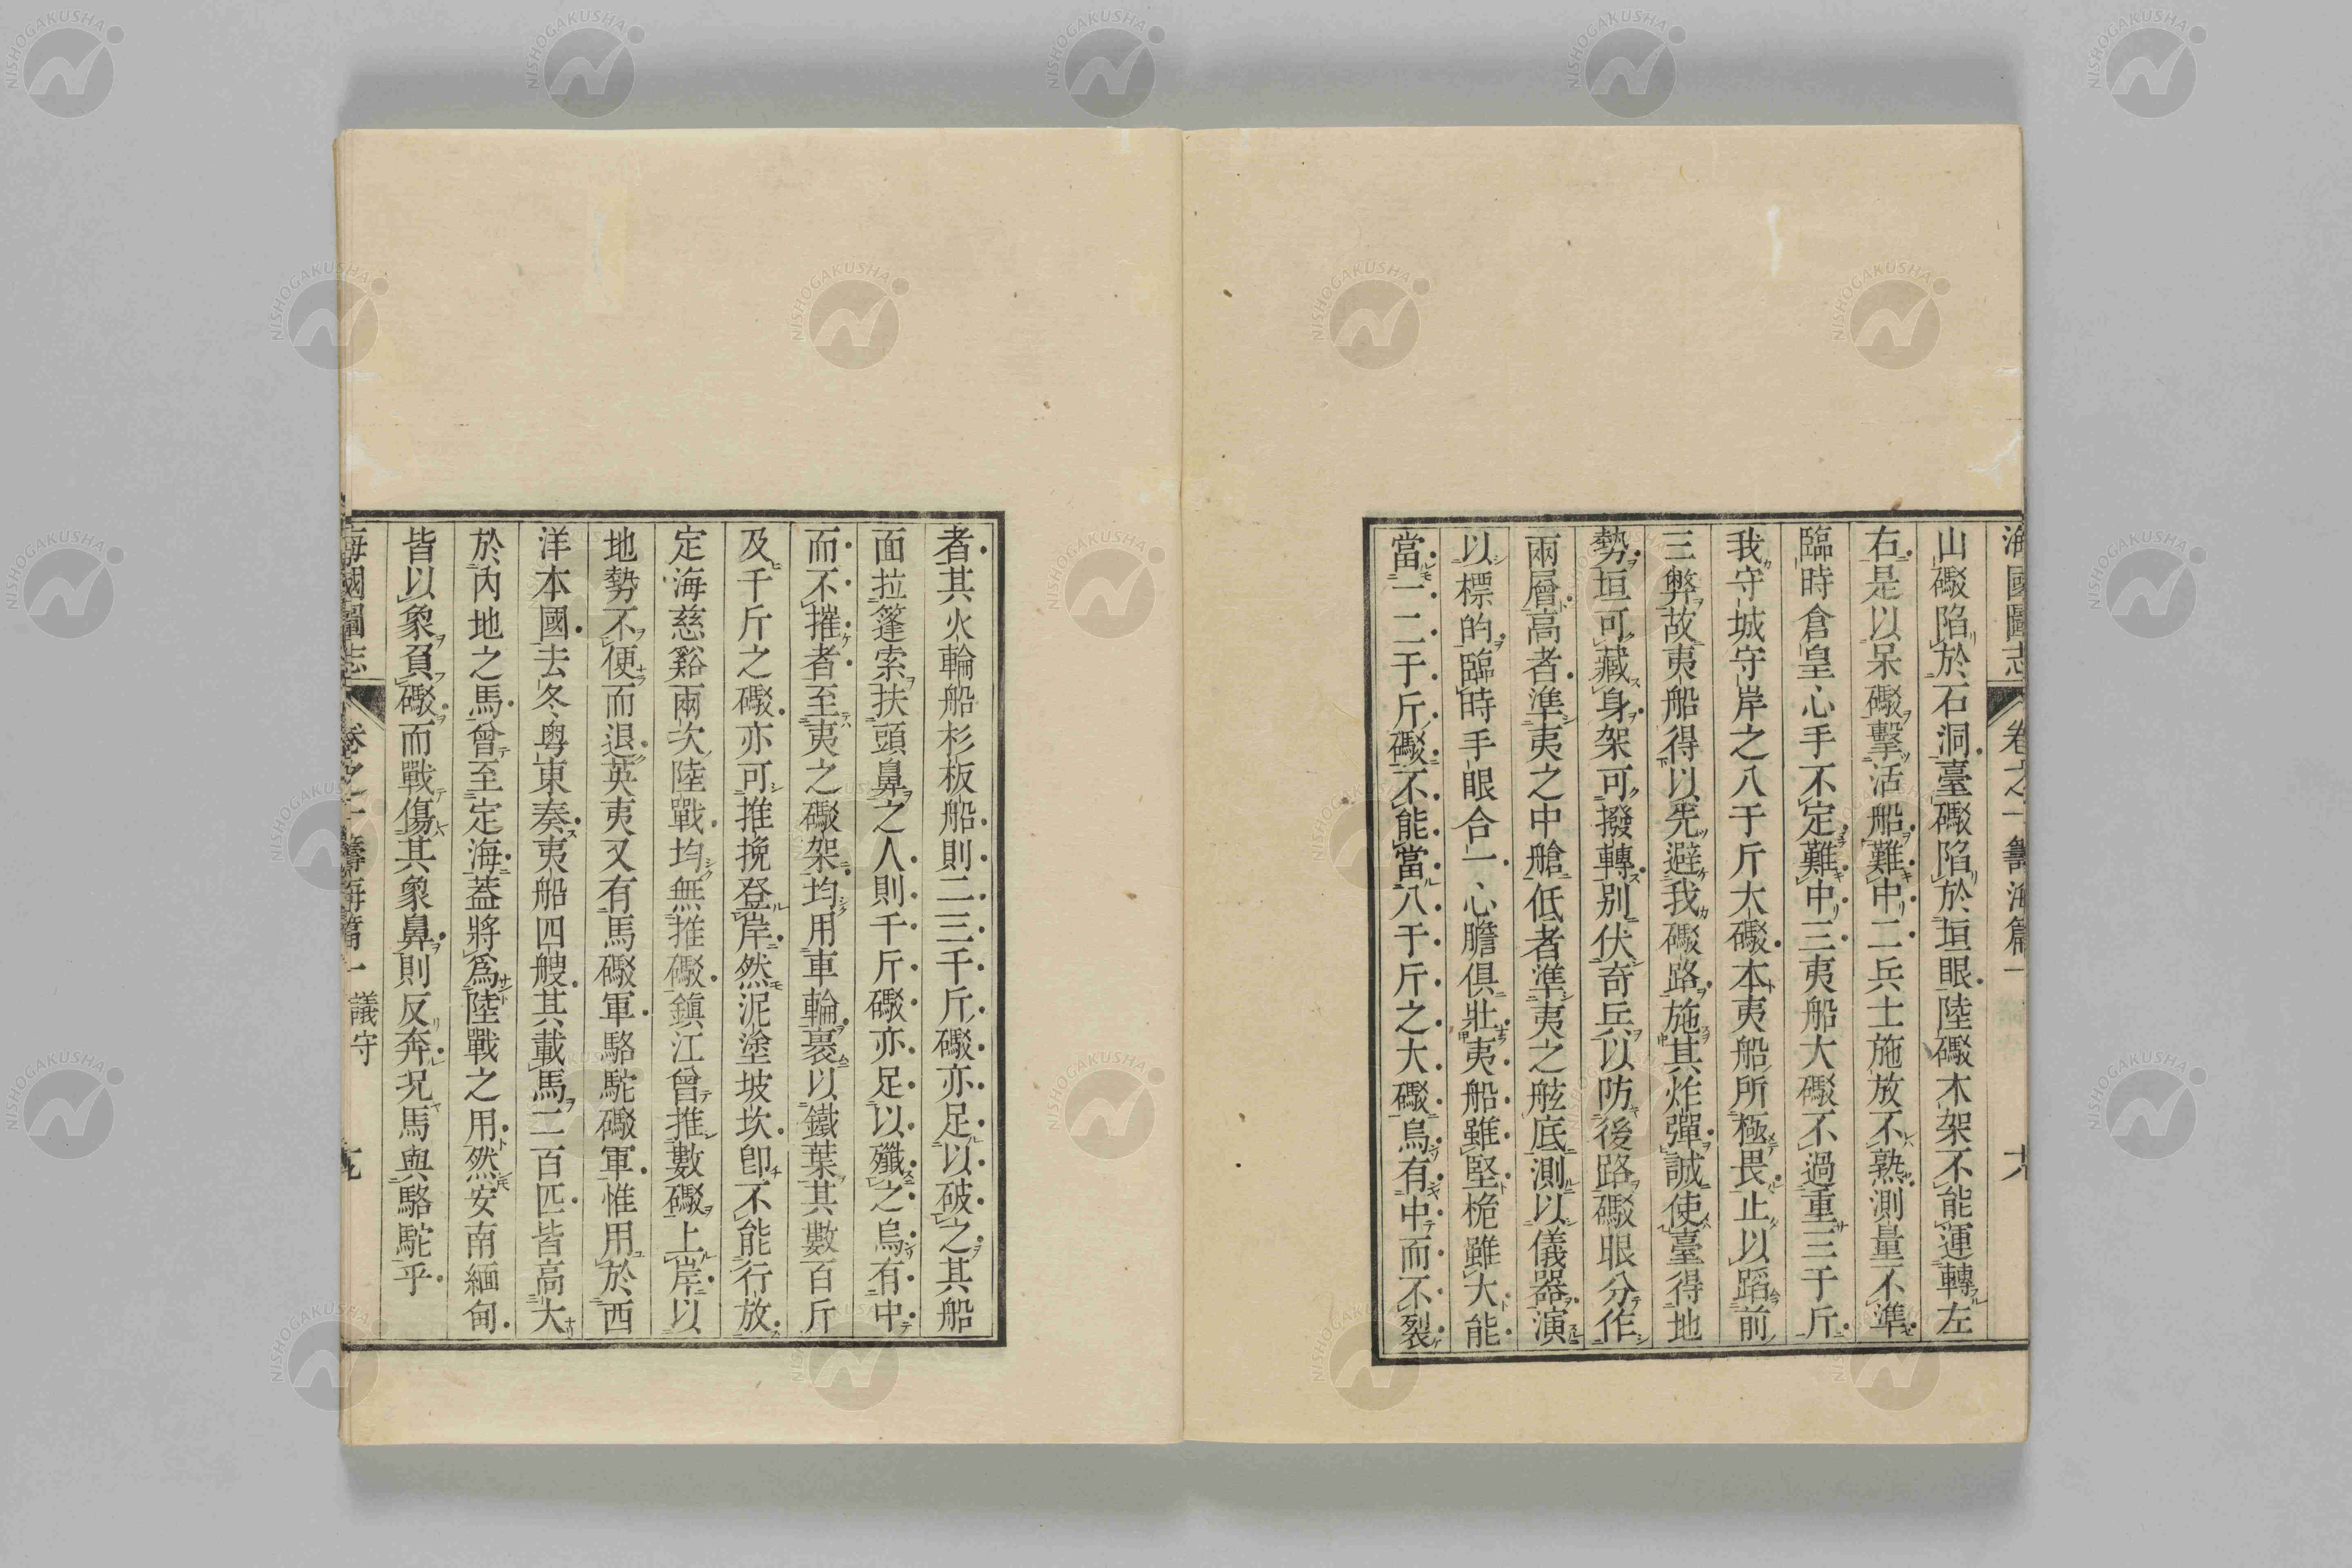 海國圖志 卷之一 籌海篇一 大
山礮陷於石洞臺礮陷於垣眼陸礮木架不能運轉左
右是以呆礮擊活船難中二兵士施放不熟測量不準
臨時倉皇心手不定難中三夷船大礮不過重三千斤
我守城守岸之八千斤大礮本夷船所極畏止以蹈前
三弊故夷船得以先避我礮路施其炸彈誠使臺得地
勢垣可藏身架可撥轉別伏奇兵以防後路礮眼分作
兩層高者準夷之中艙低者準夷之舷底測以儀器演
以標的臨時手眼合一心膽俱壯夷船雖堅桅雖大能
當一二千斤礮不能當八千斤之大礮烏有中而不裂
者其火輪船杉板船則二三千斤礮亦足以破之其船
面拉篷索扶頭鼻之人則千斤礮亦足以殲之烏有中
而不摧者至夷之礮架均用車輪裹以鐵葉其數百斤
及千斤之礮亦可推挽登岸然泥塗坡坎即不能行放
定海慈谿兩次陸戰均無推礮鎭江曾推數礮上岸以
地勢不便而退英夷又有馬礮軍駱駝礮軍惟用於西
洋本國去冬粤東奏夷船四艘其載馬二百匹皆高大
於內地之馬曾至定海蓋將爲陸戰之用然安南緬甸
皆以象負礮而戰傷其象鼻則反奔况馬與駱駝乎
海國圖志 卷之一 籌海篇一 議守 九
NISHOGAKUSHA